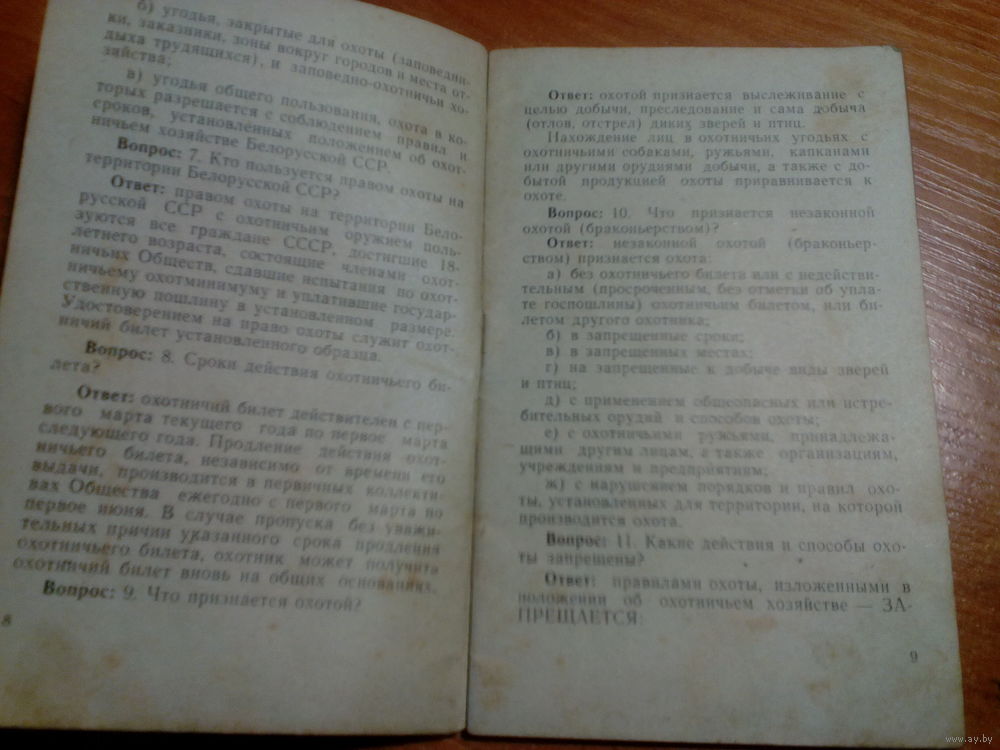 б) угодья, закрытые для охоты (заповедни-
ки, заказники, зоны вокруг городов и места от-
дыха трудящихся), и заповедно-охотничьи хо-
зяйства;
в) угодья общего пользования, охота в ко-
торых разрешается с соблюдением правил и
сроков, установленных положением об охот-
ничьем хозяйстве Белорусской ССР.
Вопрос: 7. Кто пользуется правом охоты на
территории Белорусской ССР?
Ответ: правом охоты на территории Бело-
русской ССР с охотничьим оружием поль-
зуются все граждане СССР, достигшие 18-
летнего возраста, состоящие членами охот-
ничьих Обществ, сдавшие испытания по охот-
ничьему охотминимуму и уплатившие государ-
ственную пошлину в установленном размере.
Удостоверением на право охоты служит охот-
ничий билет установленного образца.
Вопрос: 8. Сроки действия охотничьего би-
лета?
Ответ: охотничий билет действителен с пер-
вого марта текущего года по первое марта
следующего года. Продление действия охот-
ничьего билета, независимо от времени его
выдачи, производится в первичных коллекти-
вах Общества ежегодно с первого марта по
первое июня. В случае пропуска без уважи-
тельных причин указанного срока продления
охотничьего билета, охотник может получить
охотничий билет вновь на общих основаниях.
Вопрос: 9. Что признается охотой?
8
Ответ: охотой признается выслеживание с
целью добычи, преследование и сама добыча
(отлов, отстрел) диких зверей и птиц.
Нахождение лиц в охотничьих угодьях с
охотничьими собаками, ружьями, капканами
или другими орудиями добычи, а также с до-
бытой продукцией охоты приравнивается к
охоте.
Вопрос: 10. Что признается незаконной
охотой (браконьерством)?
Ответ: незаконной охотой (браконьер-
ством) признается охота:
а) без охотничьего билета или с недействи-
тельным (просроченным, без отметки об упла-
те госпошлины) охотничьим билетом, или би-
летом другого охотника;
б) в запрещенные сроки;
в) в запрещенных местах;
г) на запрещенные к добыче виды зверей
и птиц;
д) с применением общеопасных или истре-
бительных орудий и способов охоты;
е) с охотничьими ружьями, принадлежа-
щими другим лицам, а также организациям,
учреждениям и предприятиям;
ж) с нарушением порядков и правил охо-
ты, установленных для территории, на которой
производится охота.
Вопрос: 11. Какие действия и способы охо-
ты запрещены?
Ответ: правилами охоты, изложенными в
положении об охотничьем хозяйстве — ЗА-
ПРЕЩАЕТСЯ:
9
www.ay.by